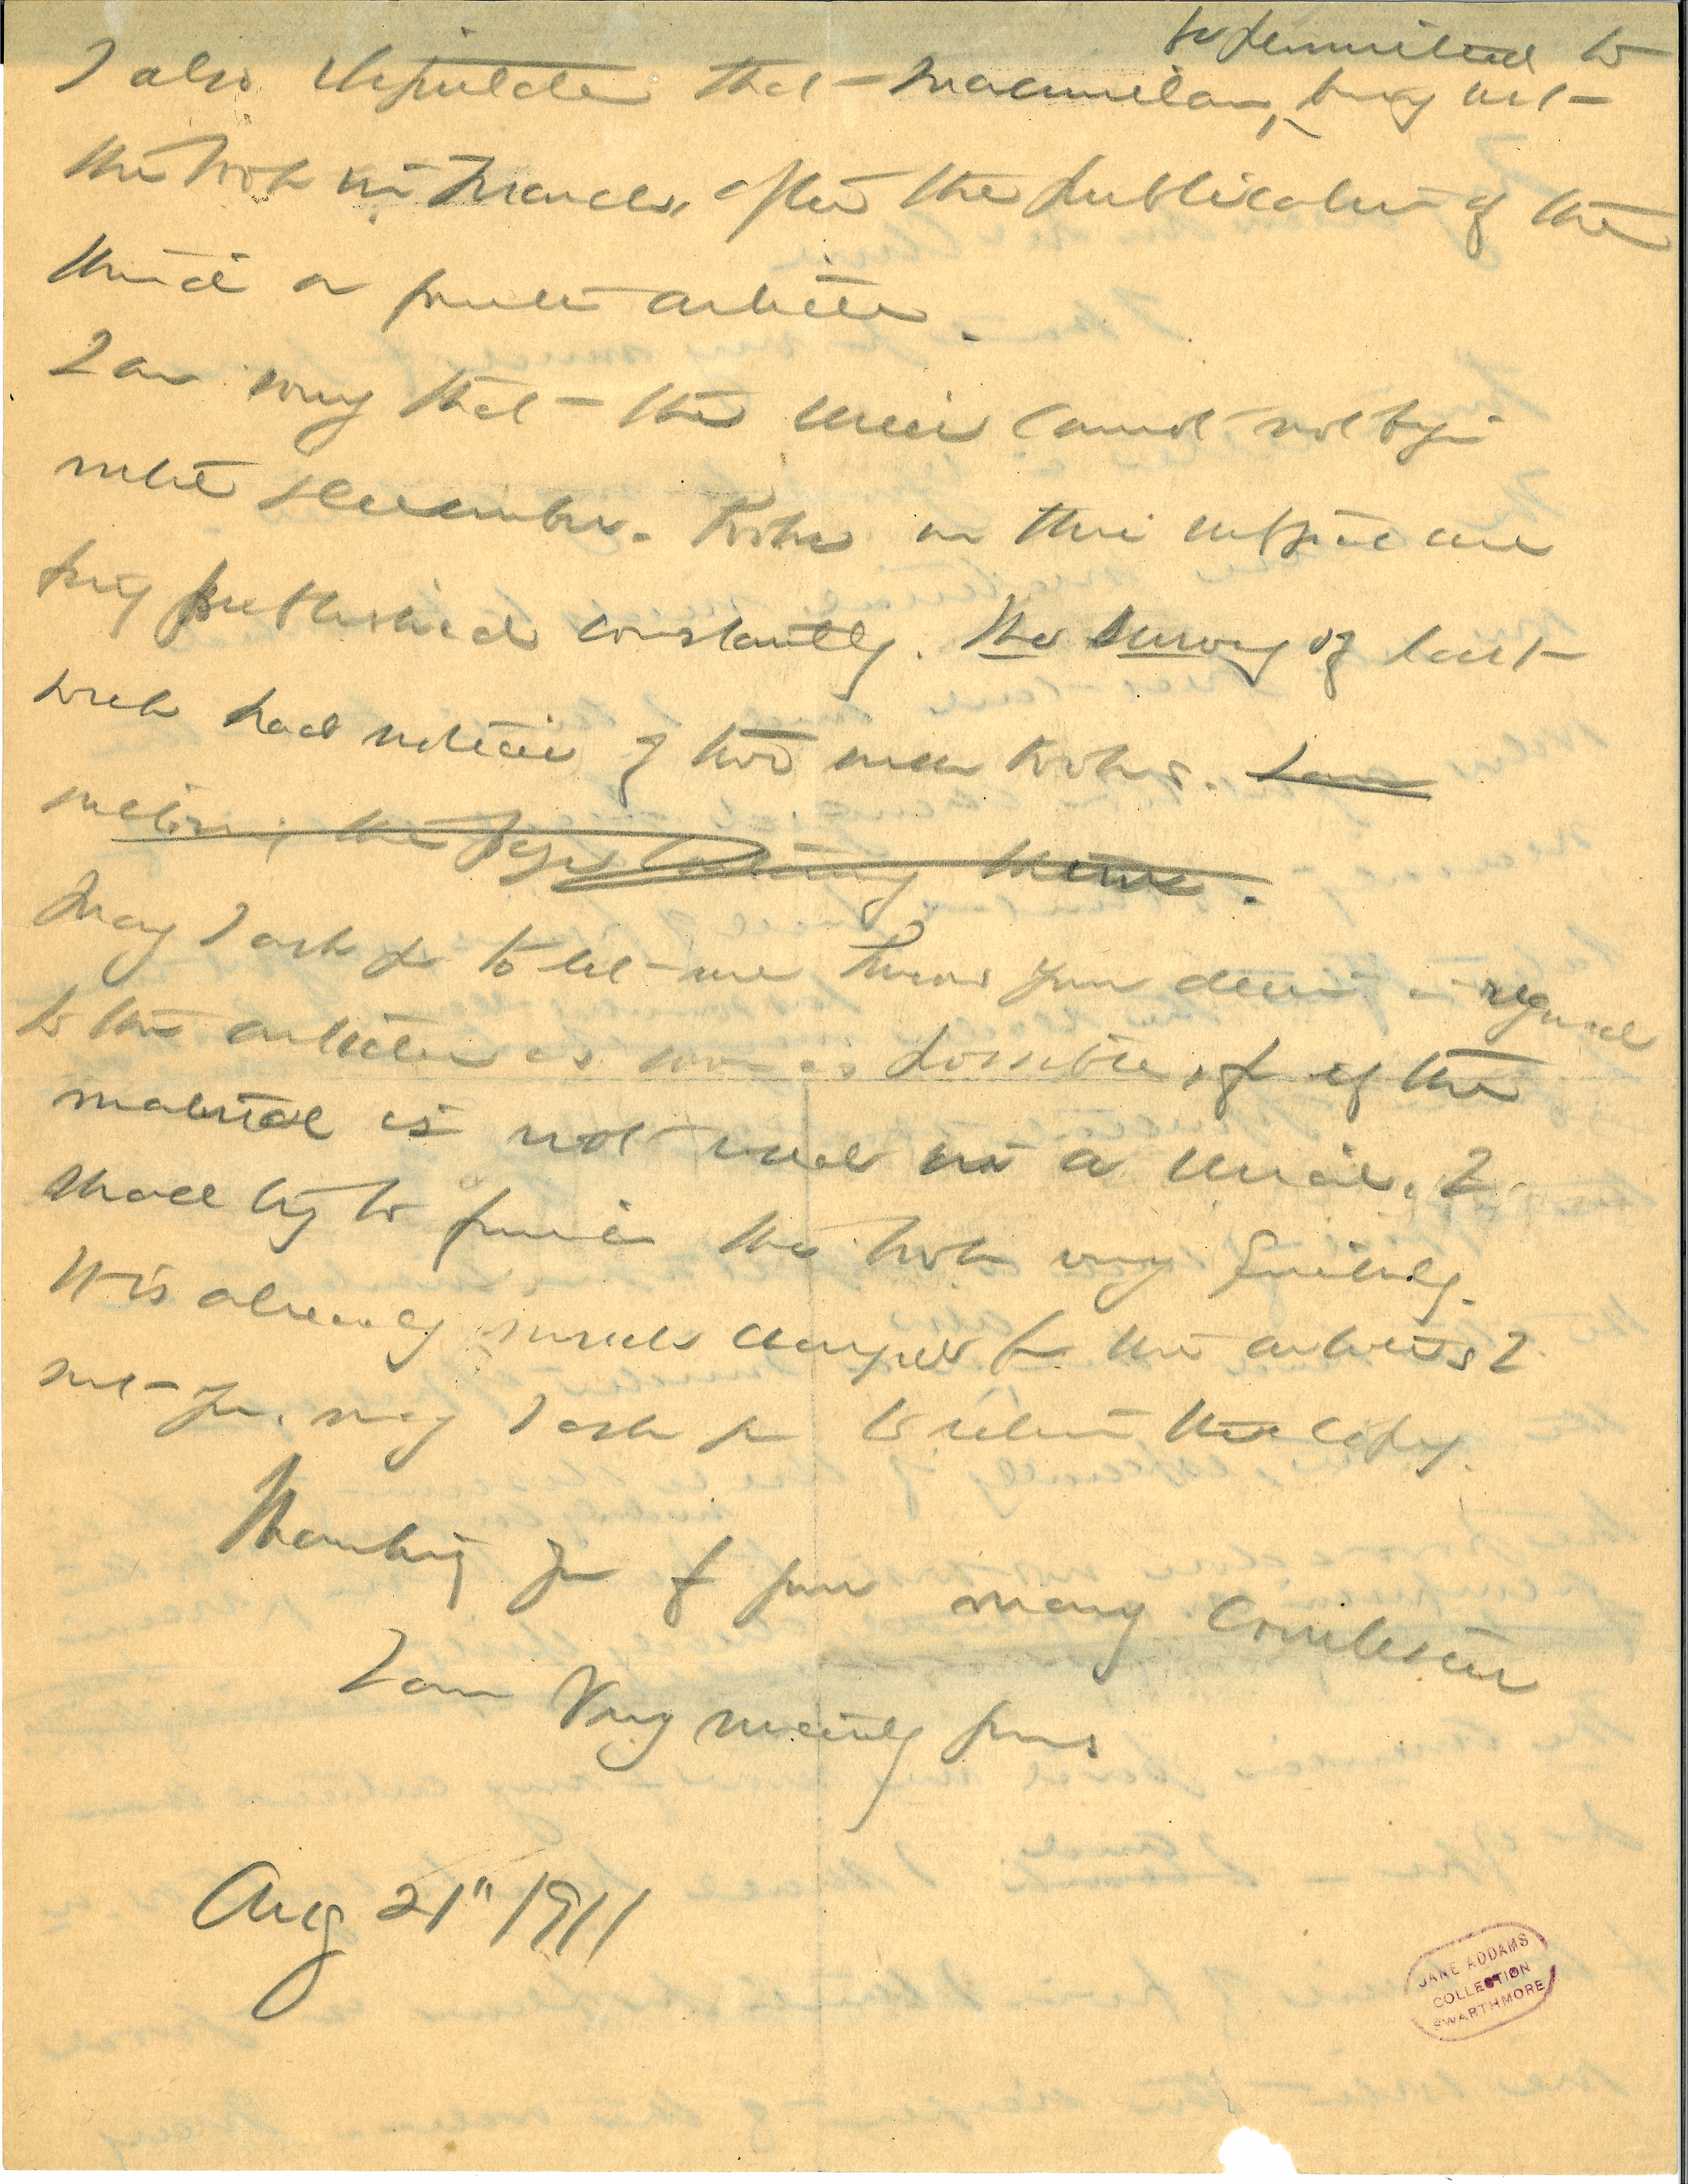 be permitted to
I also stipulate that Macmillan, bring out
the book in March, after the publication of the
third or fourth article.
I am sorry that the series cannot not begin
until December. Books on this subject are
being published constantly. The Survey of last
week had notices of two new books. I am
the pages
May I ask you to let me know your decision in regard
to the articles as soon as possible, for if the
material is not used in a series, I
shall try to finish the book very quickly.
It is already much changed from the articles I
sent you, may I ask you to return the copy.
Thanking you for your many courtesies
I am Very sincerely yours
Aug 21" 1911
JANE ADDAMS
COLLECTION
SWARTHMORE